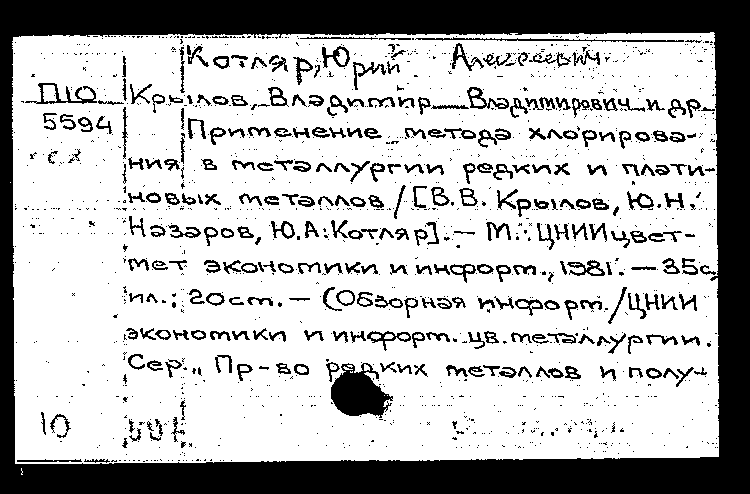 Котляр, Юрий Алексеевич
П10 Крылов, Владимир Владимирович и др.
5594 Применение метода хлорирова-
ния в металлургии редких и плати-
новых металлов / [В.В. Крылов, Ю.Н.
Назаров, Ю.А. Котляр]. — М.: ЦНИИцвет-
мет экономики и информ., 1981. — 35с,
ил.; 20 cm. — (Обзорная информ. / ЦНИИ
экономики и информ. цв. металлургии.
Сер. „ Пр-во редких металлов и полу-
10